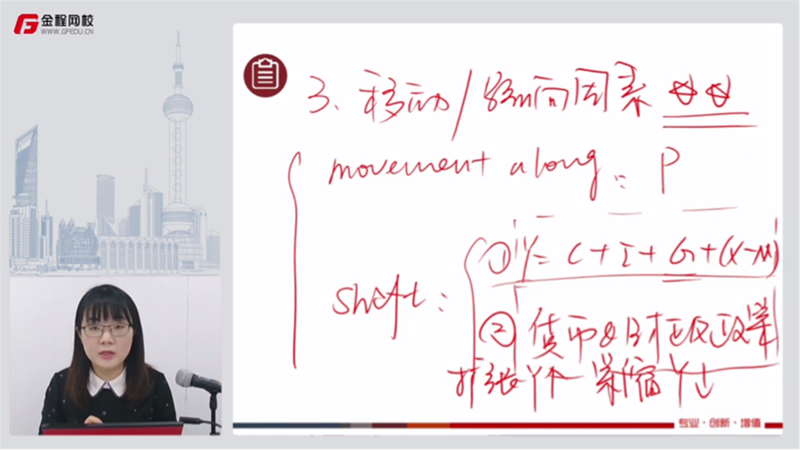 金程网校
WWW.GFEDU.CN
3、移动/影响因素 ☆☆
movement along: P
shift: ①Y = C + I + G + (X-M)
② 货币&财政政策
扩张Y↑ 紧缩Y↓
专业·创新·增值